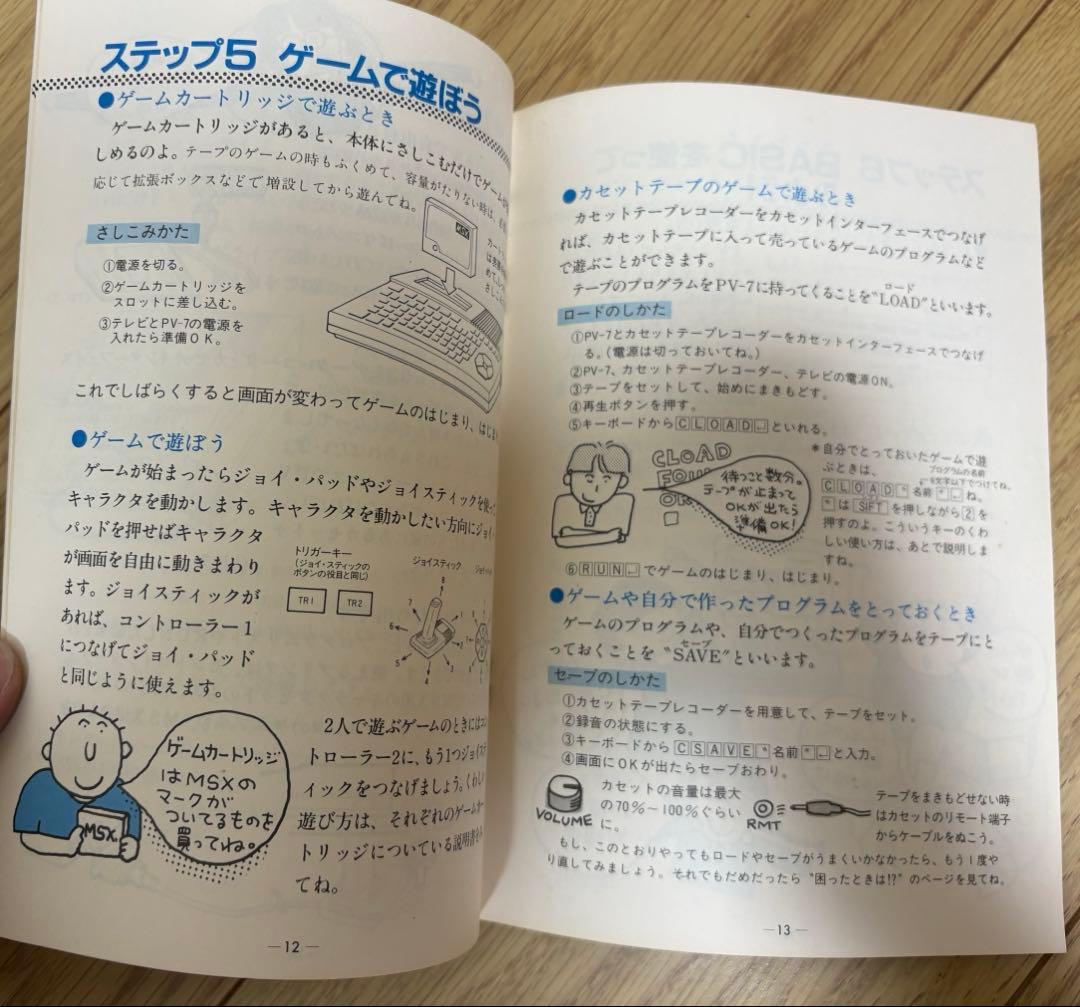 ステップ5 ゲームで遊ぼう
●ゲームカートリッジで遊ぶとき
ゲームカートリッジがあると、本体にさしこむだけでゲームが
しめるのよ。テープのゲームの時もふくめて、容量がたりない時は、
応じて拡張ボックスなどで増設してから遊んでね。
さしこみかた
①電源を切る。
②ゲームカートリッジを
スロットに差し込む。
③テレビとPV-7の電源を
入れたら準備OK。
MSX
これでしばらくすると画面が変わってゲームのはじまり、はじ
●ゲームで遊ぼう
ゲームが始まったらジョイ・パッドやジョイスティックを使っ
キャラクタを動かします。キャラクタを動かしたい方向にジョイ・
パッドを押せばキャラクタ
が画面を自由に動きまわり
ます。ジョイスティックが
あれば、コントローラー1
につなげてジョイ・パッド
と同じように使えます。
トリガーキー
(ジョイ・スティックの
ボタンの役目と同じ)
TR1 TR2
ジョイスティック
8
7
1
6
2
5
4
3
2人で遊ぶゲームのときにはコン
トローラー2に、もう1つジョイステ
ィックをつなげましょう。くわしい
遊び方は、それぞれのゲームカー
トリッジについている説明書を
てね。
ゲームカートリッジ
はMSXの
マークが
ついてるものを
買ってね。
MSX
—12—
●カセットテープのゲームで遊ぶとき
カセットテープレコーダーをカセットインターフェースでつなげ
れば、カセットテープに入って売っているゲームのプログラムなど
で遊ぶことができます。
ロード
テープのプログラムをPV-7に持ってくることを"LOAD"といいます。
ロードのしかた
①PV-7とカセットテープレコーダーをカセットインターフェースでつなげ
る。(電源は切っておいてね。)
②PV-7、カセットテープレコーダー、テレビの電源ON。
③テープをセットして、始めにまきもどす。
④再生ボタンを押す。
⑤キーボードからCLOAD↵といれる。
CLOAD
FOU
OK
待つこと数分。
テープが止まって
OKが出たら
準備OK!
*自分でとっておいたゲームで遊
ぶときは、
プログラムの名前
6文字以下でつけてね。
CLOAD"名前"↵ね。
"はSIFTを押しながら2を
押すのよ。こういうキーのくわ
しい使い方は、あとで説明しま
すね。
⑥RUN↵でゲームのはじまり、はじまり。
●ゲームや自分で作ったプログラムをとっておくとき
ゲームのプログラムや、自分でつくったプログラムをテープにと
セーブ
っておくことを "SAVE"といいます。
セーブのしかた
①カセットテープレコーダーを用意して、テープをセット。
②録音の状態にする。
③キーボードからCSAVE"名前"↵と入力。
④画面にOKが出たらセーブおわり。
VOLUME
カセットの音量は最大
の70%〜100%ぐらい
に。
RMT
テープをまきもどせない時
はカセットのリモート端子
からケーブルをぬこう。
もし、このとおりやってもロードやセーブがうまくいかなかったら、もう1度や
り直してみましょう。それでもだめだったら "困ったときは!?" のページを見てね。
—13—